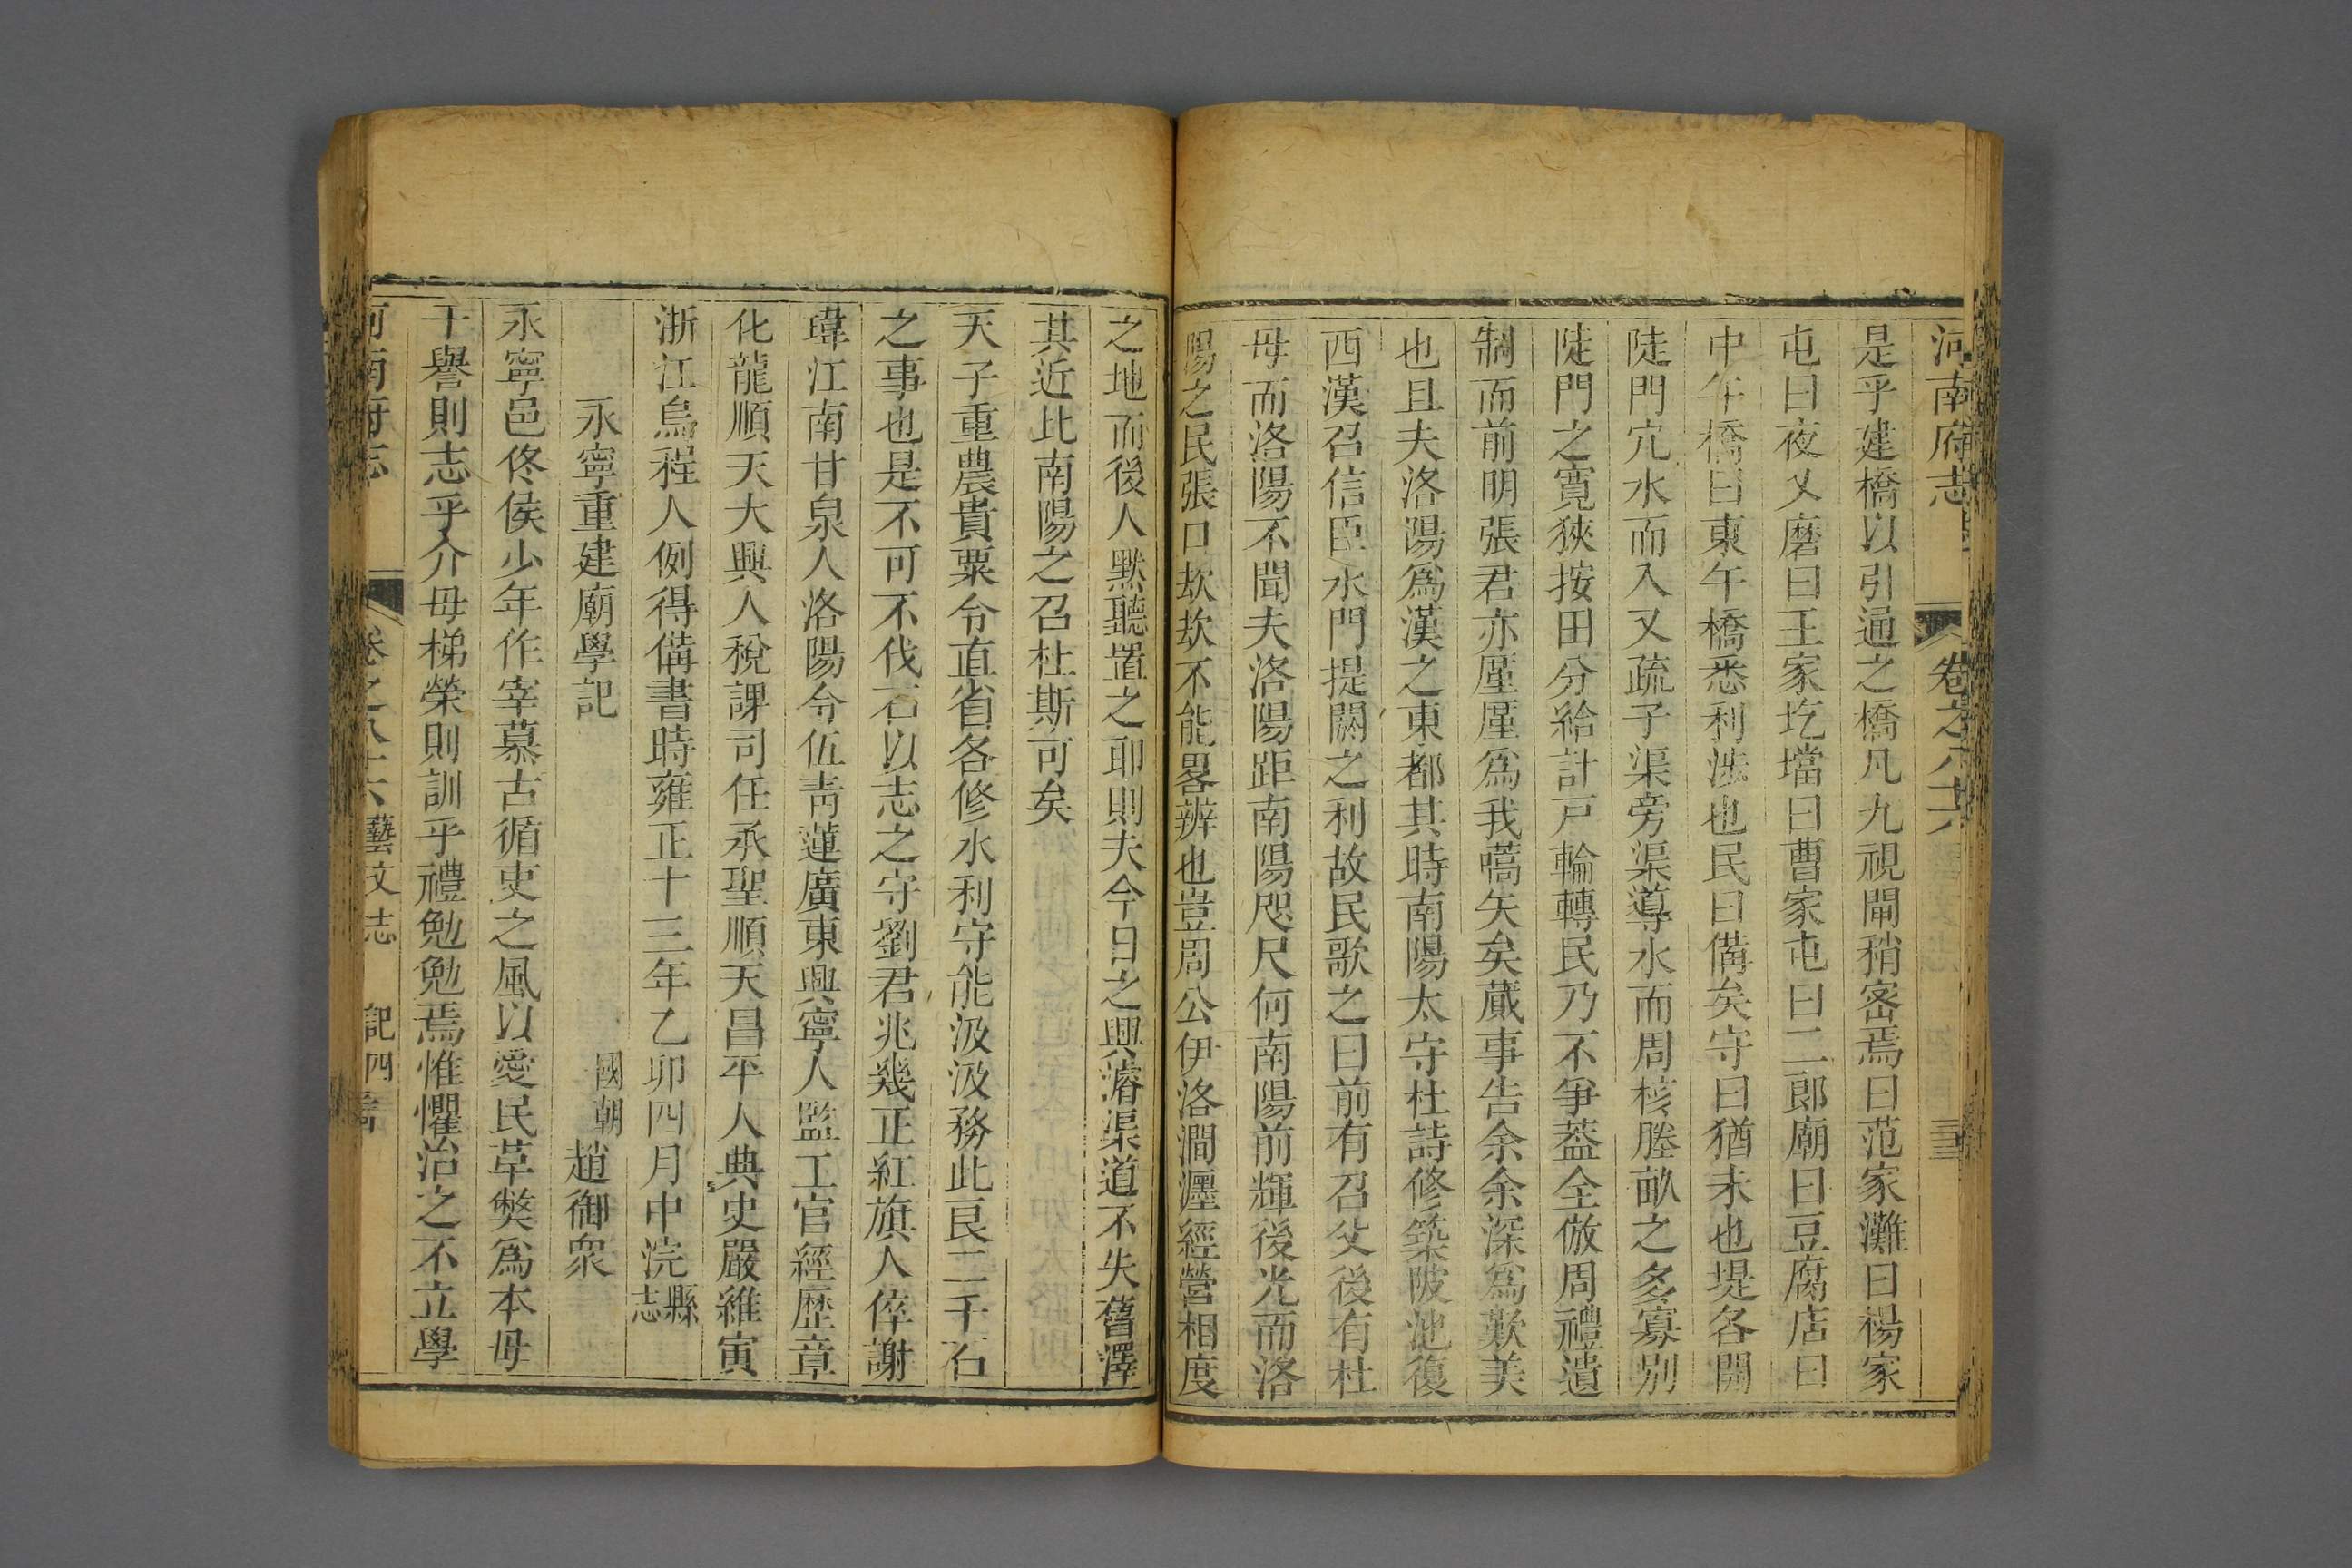 河南府志 卷之八十六
是乎建橋以引通之橋凡九視閘稍密焉曰范家灘曰楊家
屯曰夜乂磨曰王家圪壋曰曹家屯曰二郎廟曰豆腐店曰
中午橋曰東午橋悉利涉也民曰備矣守曰猶未也堤各開
陡門穴水而入又疏子渠旁渠導水而周核塍畝之多寡别
陡門之寬狹按田分給計戸輪轉民乃不爭葢全倣周禮遺
制而前明張君亦厪厪爲我蒿矢矣蕆事告余余深爲歎美
也且夫洛陽爲漢之東都其時南陽太守杜詩修築陂池復
西漢召信臣水門提閼之利故民歌之曰前有召父後有杜
母而洛陽不聞夫洛陽距南陽咫尺何南陽前輝後光而洛
陽之民張口欿欿不能畧辨也豈周公伊洛澗瀍經營相度
之地而後人黙聽置之耶則夫今日之興濬渠道不失舊澤
其近比南陽之召杜斯可矣
天子重農貴粟令直省各修水利守能汲汲務此良二千石
之事也是不可不伐石以志之守劉君兆幾正紅旗人倅謝
瑋江南甘泉人洛陽令伍靑蓮廣東興寧人監工官經歴章
化龍順天大興人稅課司任承聖順天昌平人典史嚴維寅
浙江烏程人例得備書時雍正十三年乙卯四月中浣縣志
永寧重建廟學記
國朝趙御衆
永寧邑佟侯少年作宰慕古循吏之風以愛民革獘爲本毋
干譽則志乎介毋梯榮則訓乎禮勉勉焉惟懼治之不立學
河南府志 卷之八十六 藝文志 記四